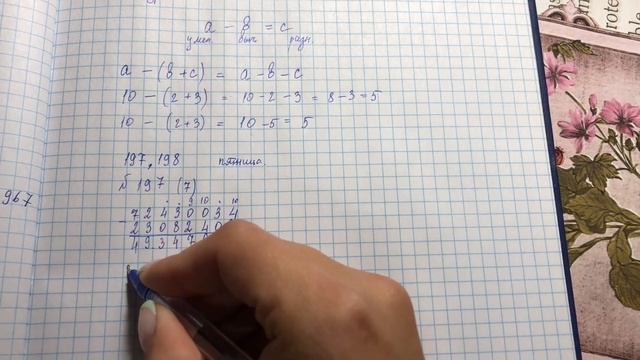 a - в = c
умен. выч. разн.
a - (в+c) = a-в-c
10 - (2+3) = 10-2-3 = 8-3=5
10 - (2+3) = 10-5= 5
197, 198 пятница.
б 197 (7)
967
9 10 10
- 7 2 4 3 0 0 3 4
2 3 0 8 2 4 0
4 9 3 4 7